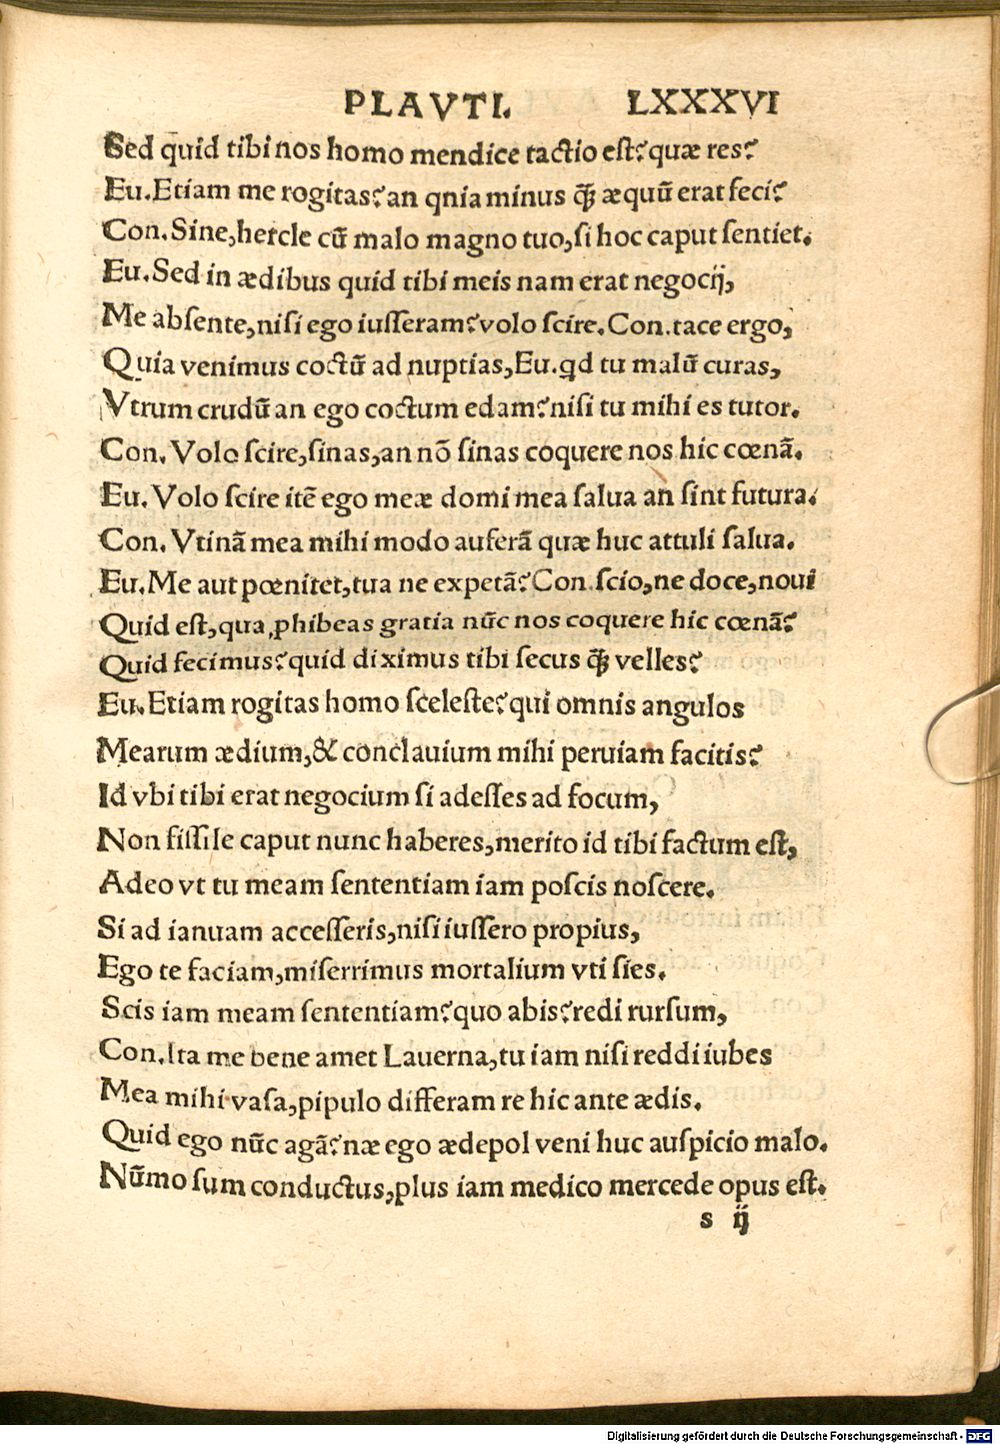 PLAVTI. LXXXVI
Sed quid tibi nos homo mendice tactio eſt? quæ res?
Eu. Etiam me rogitas? an qnia minus ꝙ̃ æquũ erat feci?
Con. Sine, hercle cũ malo magno tuo, ſi hoc caput ſentiet.
Eu. Sed in ædibus quid tibi meis nam erat negocij,
Me abſente, niſi ego iuſſeram? volo ſcire. Con. tace ergo,
Quia venimus coctũ ad nuptias, Eu. qd tu malũ curas,
Vtrum crudũ an ego coctum edam? niſi tu mihi es tutor.
Con. Volo ſcire, ſinas, an nõ ſinas coquere nos hic cœnã.
Eu. Volo ſcire itẽ ego meæ domi mea ſalua an ſint futura.
Con. Vtinã mea mihi modo auferã quæ huc attuli ſalua.
Eu. Me aut pœnitet, tua ne expetã? Con. ſcio, ne doce, noui
Quid eſt, qua ꝓhibeas gratia nũc nos coquere hic cœnã?
Quid fecimus? quid diximus tibi ſecus ꝙ̃ velles?
Eu. Etiam rogitas homo ſceleſte? qui omnis angulos
Mearum ædium, & conclauium mihi peruiam facitis?
Id vbi tibi erat negocium ſi adeſſes ad focum,
Non fiſſile caput nunc haberes, merito id tibi factum eſt,
Adeo vt tu meam ſententiam iam poſcis noſcere.
Si ad ianuam acceſſeris, niſi iuſſero propius,
Ego te faciam, miſerrimus mortalium vti ſies.
Scis iam meam ſententiam? quo abis? redi rurſum,
Con. Ita me bene amet Lauerna, tu iam niſi reddi iubes
Mea mihi vaſa, pipulo differam re hic ante ædis.
Quid ego nũc agã? næ ego ædepol veni huc auſpicio malo.
Nũmo ſum conductus, plus iam medico mercede opus eſt.
s ij
Digitalisierung gefördert durch die Deutsche Forschungsgemeinschaft - DFG